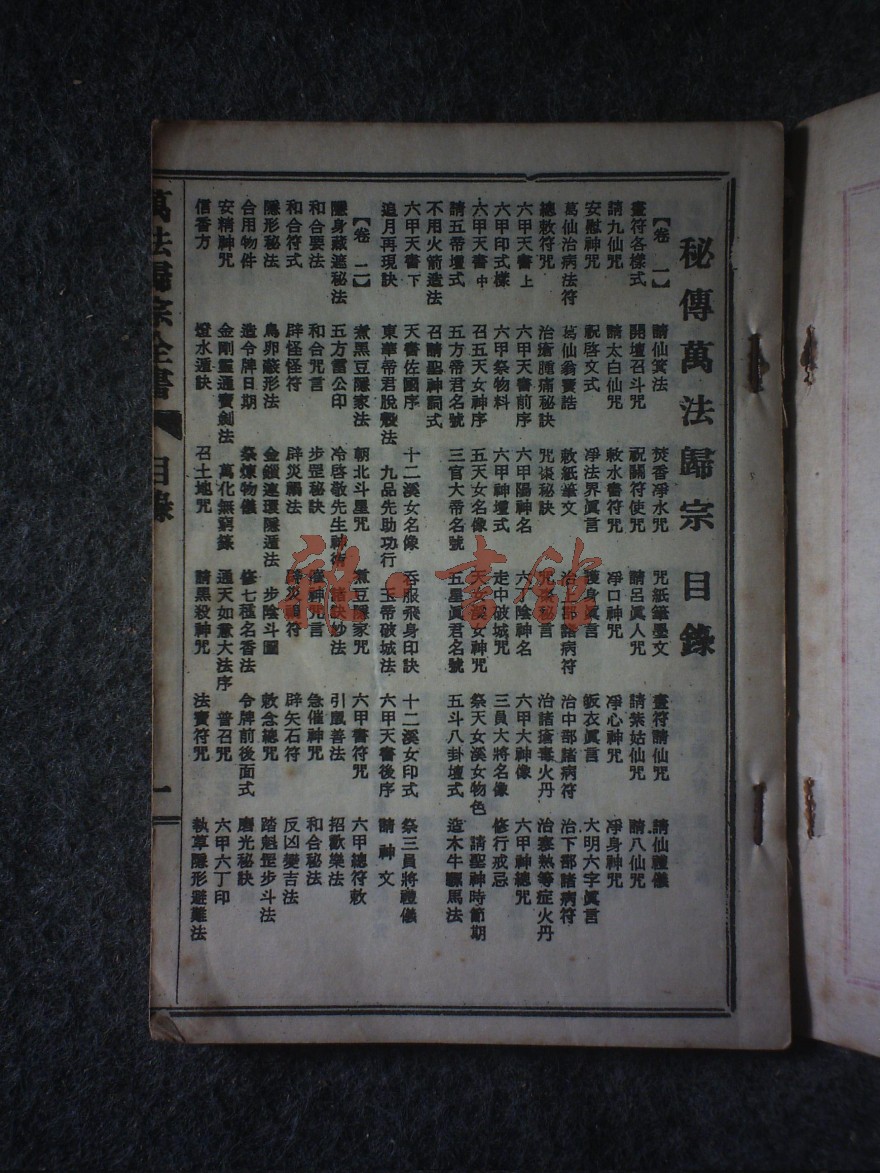 秘傳萬法歸宗 目錄
【卷一】 請仙箕法 焚香凈水咒 咒紙筆墨文 畫符請仙咒 請仙禮儀
畫符各樣式 開壇召斗咒 祝關符使咒 請呂眞人咒 請紫姑仙咒 請八仙咒
請九仙咒 請太白仙咒 敕水書符咒 凈口神咒 凈心神咒 凈身神咒
安慰神咒 祝啓文式 凈法界眞言 護身眞言 皈衣眞言 大明六字眞言
葛仙治病法符 葛仙翁寶誥 敕紙筆文 治上部諸病符 治中部諸病符 治下部諸病符
總敕符咒 治瘡腫痛秘訣 咒棗秘訣 咒棗秘言 治諸瘡毒火丹 治寒熱等症火丹
六甲天書上 六甲天書前序 六甲陽神名 六甲陰神名 六甲大神像 六甲神總咒
六甲印式樣 六甲祭物料 六甲神壇式 走中破城咒 三員大將名像 修行戒忌
六甲天書中 召五天女神序 五天女名像 天女溪女神咒 祭天女溪女物色 請聖神時節期
請五帝壇式 五方帝君名號 三官大帝名號 五星眞君名號 五斗八卦壇式 造木牛騾馬法
不用火箭造法 召請聖神詞式
六甲天書下 天書佐國序 十二溪女名像 吞服飛身印訣 十二溪女印式 祭三員將禮儀
追月再現訣 東華帝君脫殼法 九品先助功行 玉帝破城法 六甲天書後序 請神文
【卷二】 煮黑豆隱家法 朝北斗星咒 煮豆隱家咒 六甲書符咒 六甲總符敕
隱身蔽遮秘法 五方雷公印 冷啓敬先生神術 諸訣妙法 引鳳善法 招歡樂法
和合要法 和合咒言 步罡秘訣 催神咒言 急催神咒 和合秘法
和合符式 辟怪怪符 辟災驅法 辟災禍符 辟矢石符 反凶變吉法
隱形秘法 鳥卵蔽形法 金鎖連環隱遁法 步陰斗圖 敕念總咒 踏魁罡步斗法
合用物件 造令牌日期 祭煉物儀 修七種名香法 令牌前後面式 磨光秘訣
安精神咒 金剛靈通寶劍法 萬化無窮籙 通天如意大法序 普召咒 六甲六丁印
信香方 燈水遁訣 召土地咒 請黑殺神咒 法寶符咒 執草隱形避難法
萬法歸宗全書 目錄 一
書館